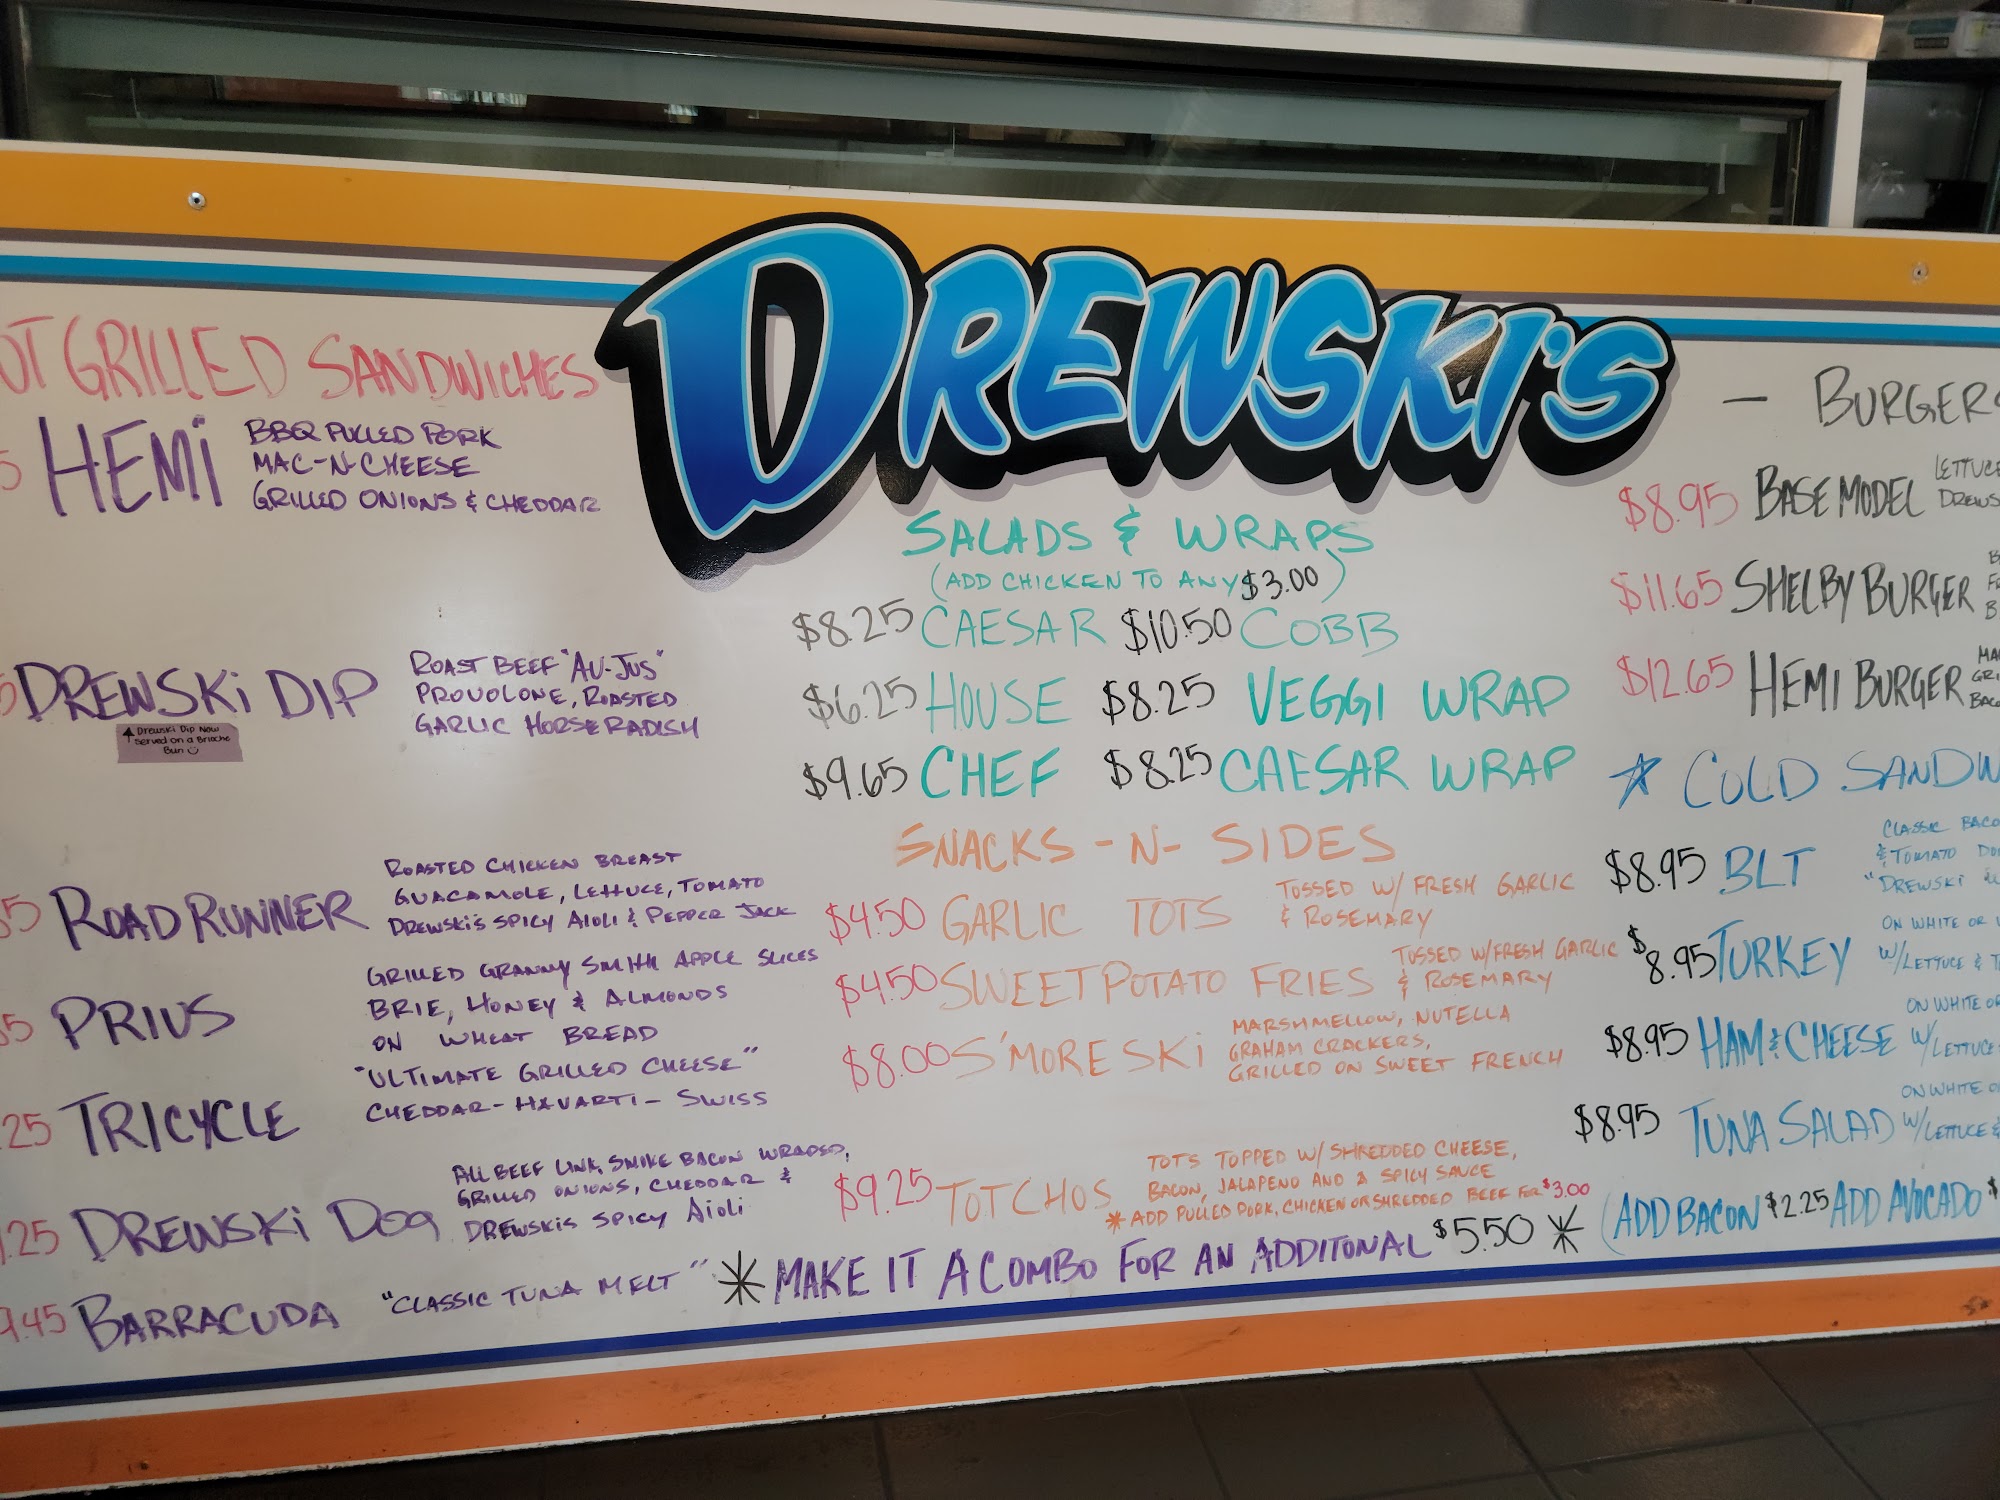 DREWSKI'S
GRILLED SANDWICHES
HEMI
BBQ PULLED PORK
MAC-N-CHEESE
GRILLED ONIONS & CHEDDAR
DREWSKI DIP
ROAST BEEF "AU-JUS"
PROVOLONE, ROASTED
GARLIC HORSERADISH
Drewski Dip Now
served on a Brioche
Bun
ROAD RUNNER
ROASTED CHICKEN BREAST
GUACAMOLE, LETTUCE, TOMATO
DREWSKI'S SPICY AIOLI & PEPPER JACK
PRIUS
GRILLED GRANNY SMITH APPLE SLICES
BRIE, HONEY & ALMONDS
ON WHEAT BREAD
.25 TRICYCLE
"ULTIMATE GRILLED CHEESE"
CHEDDAR-HAVARTI-SWISS
.25 DREWSKI DOG
ALL BEEF LINK, SMIKE BACON WRAPPED,
GRILLED ONIONS, CHEDDAR &
DREWSKIS SPICY AIOLI
9.45 BARRACUDA "CLASSIC TUNA MELT"
SALADS & WRAPS
(ADD CHICKEN TO ANY $3.00)
$8.25 CAESAR $10.50 COBB
$6.25 HOUSE $8.25 VEGGI WRAP
$9.65 CHEF $8.25 CAESAR WRAP
SNACKS -N- SIDES
$4.50 GARLIC TOTS
TOSSED W/ FRESH GARLIC
& ROSEMARY
$4.50 SWEET POTATO FRIES
TOSSED W/FRESH GARLIC
& ROSEMARY
$8.00 S'MORESKI
MARSHMELLOW, NUTELLA
GRAHAM CRACKERS,
GRILLED ON SWEET FRENCH
$9.25 TOTCHOS
TOTS TOPPED W/ SHREDDED CHEESE,
BACON, JALAPENO AND A SPICY SAUCE
* ADD PULLED PORK, CHICKEN OR SHREDDED BEEF FOR $3.00
* MAKE IT A COMBO FOR AN ADDITONAL $5.50 *
— BURGERS
$8.95 BASE MODEL
LETTUCE
$11.65 SHELBY BURGER
$12.65 HEMI BURGER
COLD
$8.95 BLT
CLASSIC
& TOMATO
"DREWSKI
$8.95 TURKEY
ON WHITE OR
W/LETTUCE &
$8.95 HAM & CHEESE
ON WHITE OR
W/LETTUCE
$8.95 TUNA SALAD
ON WHITE OR
W/LETTUCE &
(ADD BACON $2.25 ADD AVOCADO $